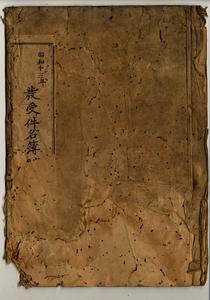 昭和十三年
受件名簿